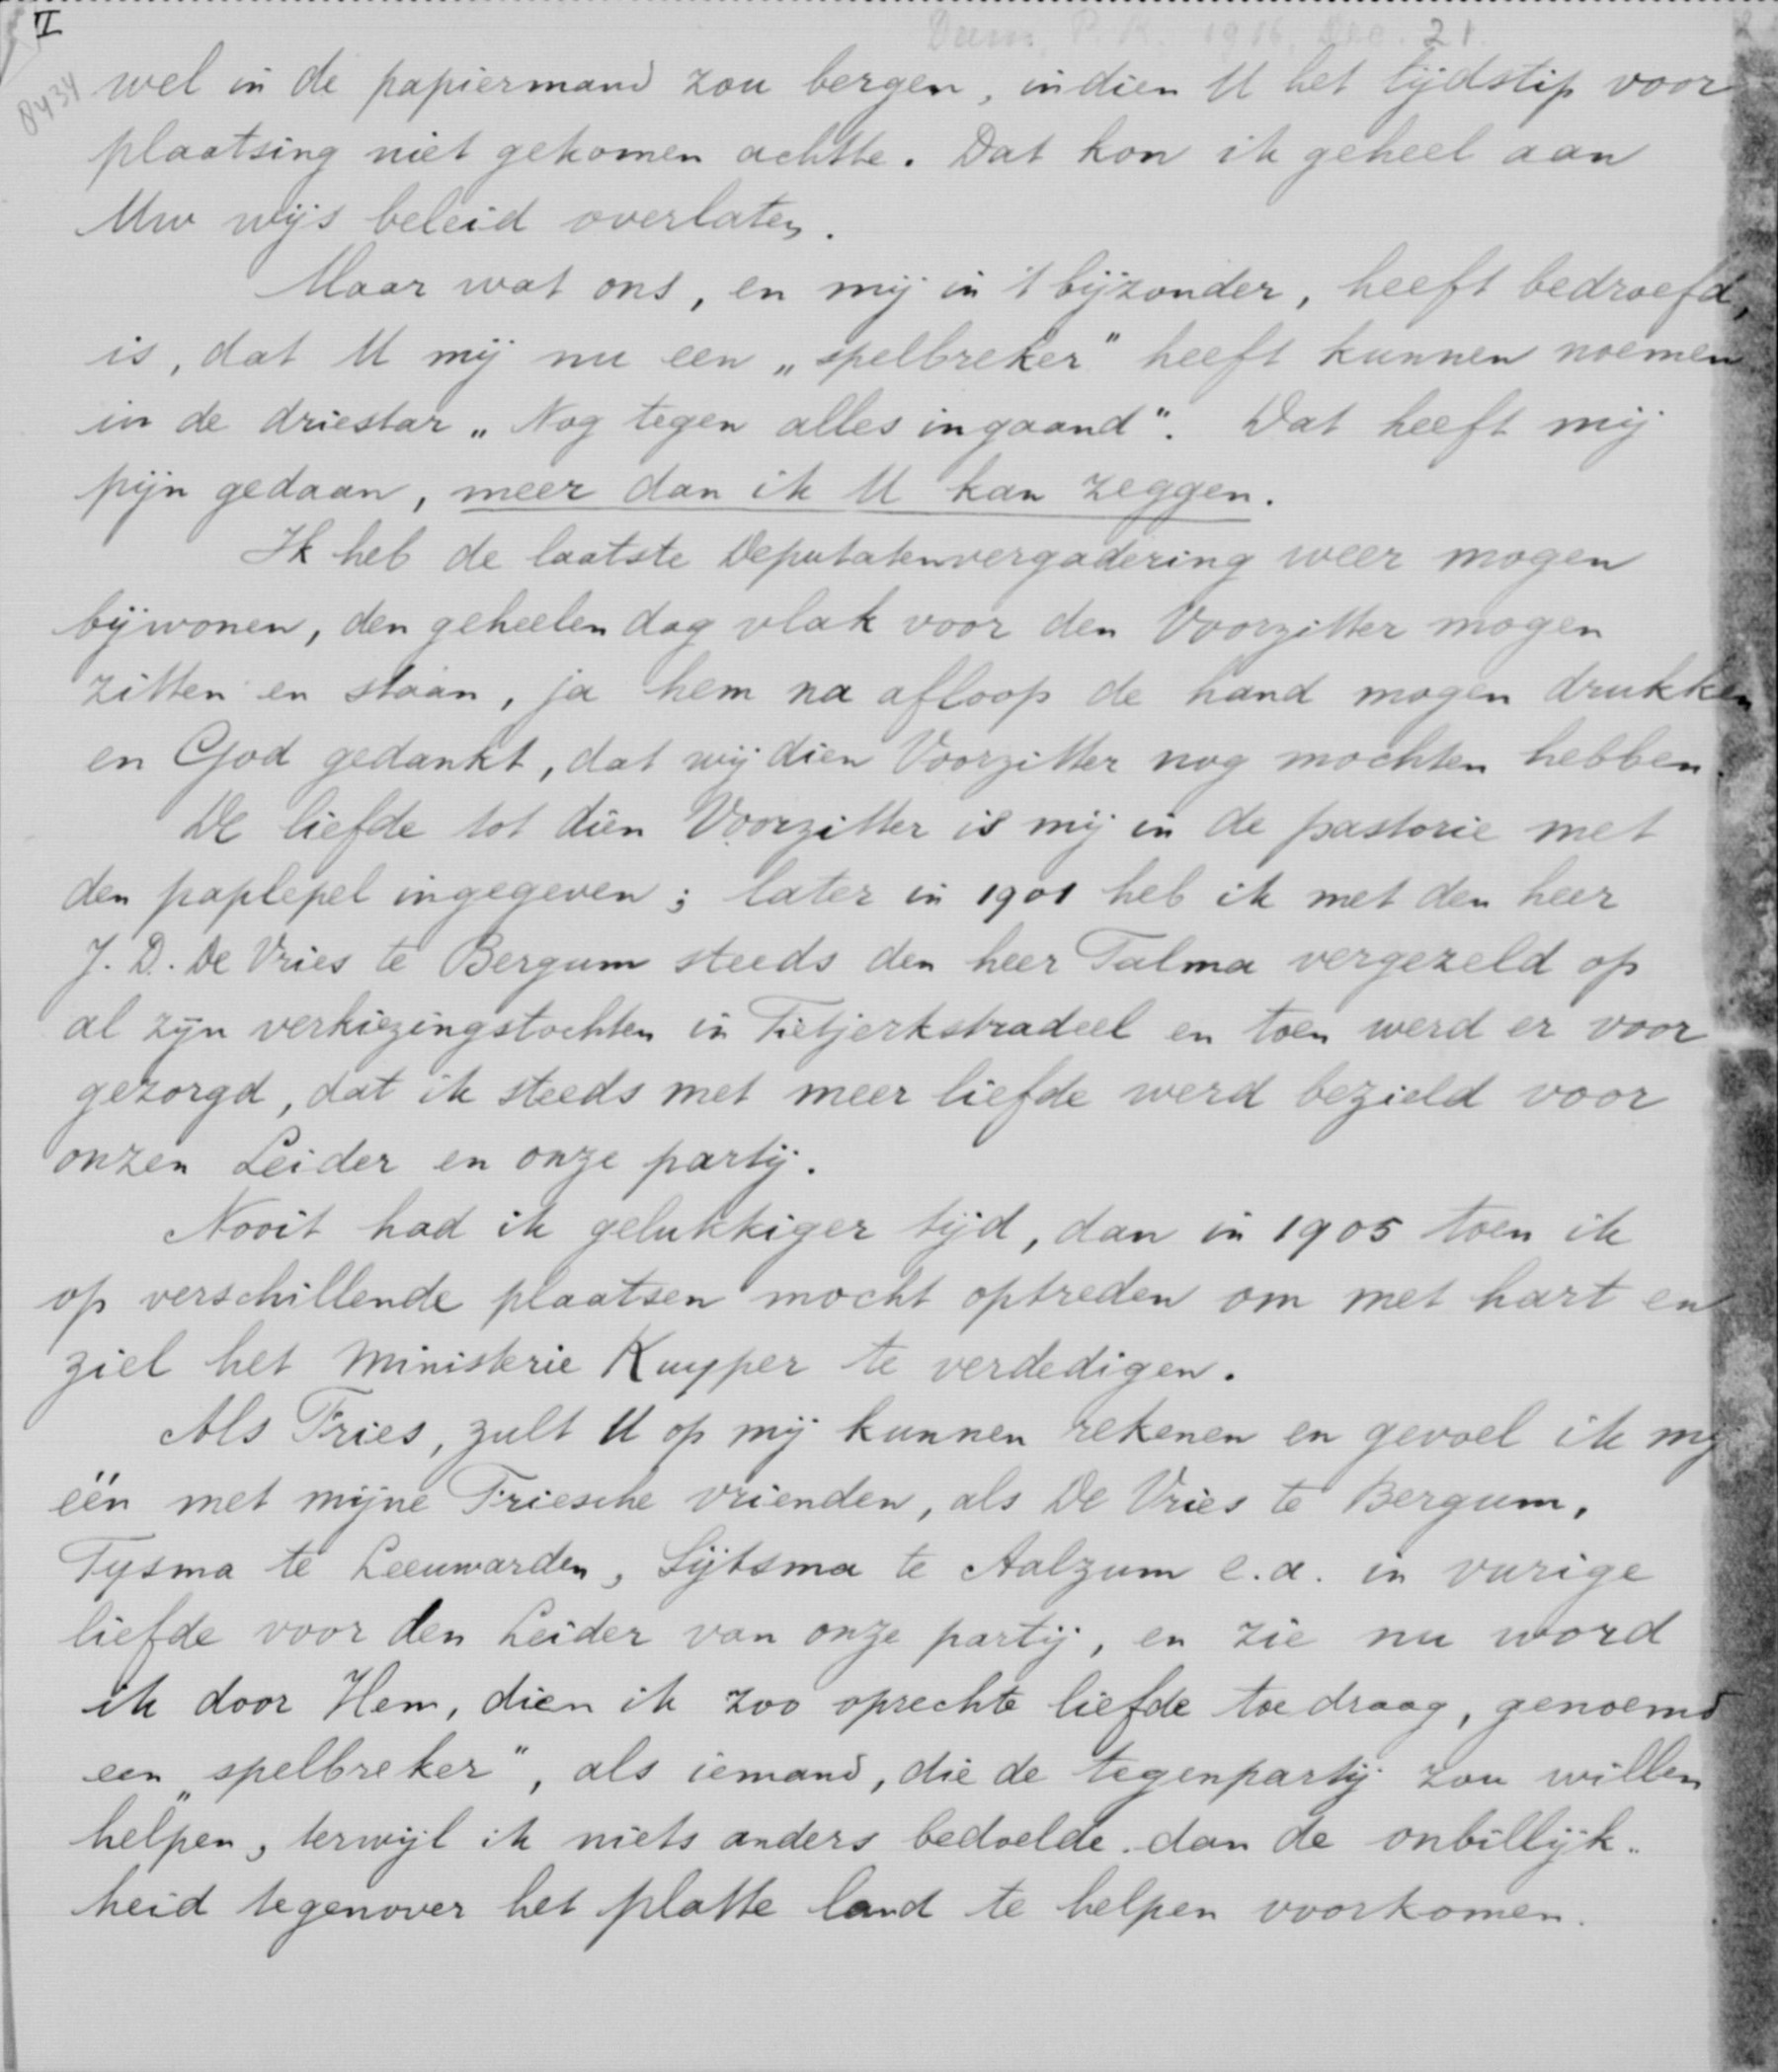 II
Dam, P.K. 1916, Dec. 21.
8434
wel in de papiermand zou bergen, indien U het tijdstip voor
plaatsing niet gekomen achtte. Dat kon ik geheel aan
Uw wijs beleid overlaten.
Maar wat ons, en mij in 't bijzonder, heeft bedroefd,
is, dat U mij nu een „spelbreker" heeft kunnen noemen
in de driestar „Nog tegen alles ingaand". Dat heeft mij
pijn gedaan, meer dan ik U kan zeggen.
Ik heb de laatste Deputatenvergadering weer mogen
bijwonen, den geheelen dag vlak voor den Voorzitter mogen
zitten en staan, ja hem na afloop de hand mogen drukken
en God gedankt, dat wij dien Voorzitter nog mochten hebben.
De liefde tot dien Voorzitter is mij in de pastorie met
den paplepel ingegeven; later in 1901 heb ik met den heer
J. D. De Vries te Bergum steeds den heer Talma vergezeld op
al zijn verkiezingstochten in Tietjerkstradeel en toen werd er voor
gezorgd, dat ik steeds met meer liefde werd bezield voor
onzen Leider en onze partij.
Nooit had ik gelukkiger tijd, dan in 1905 toen ik
op verschillende plaatsen mocht optreden om met hart en
ziel het Ministerie Kuyper te verdedigen.
Als Fries, zult U op mij kunnen rekenen en gevoel ik mij
één met mijne Friesche vrienden, als De Vries te Bergum,
Tysma te Leeuwarden, Sijtsma te Aalzum e.a. in vurige
liefde voor den Leider van onze partij, en zie nu word
ik door Hem, dien ik zoo oprechte liefde toedraag, genoemd
een „spelbreker", als iemand, die de tegenpartij zou willen
helpen, terwijl ik niets anders bedoelde dan de onbillijk-
heid tegenover het platte land te helpen voorkomen.